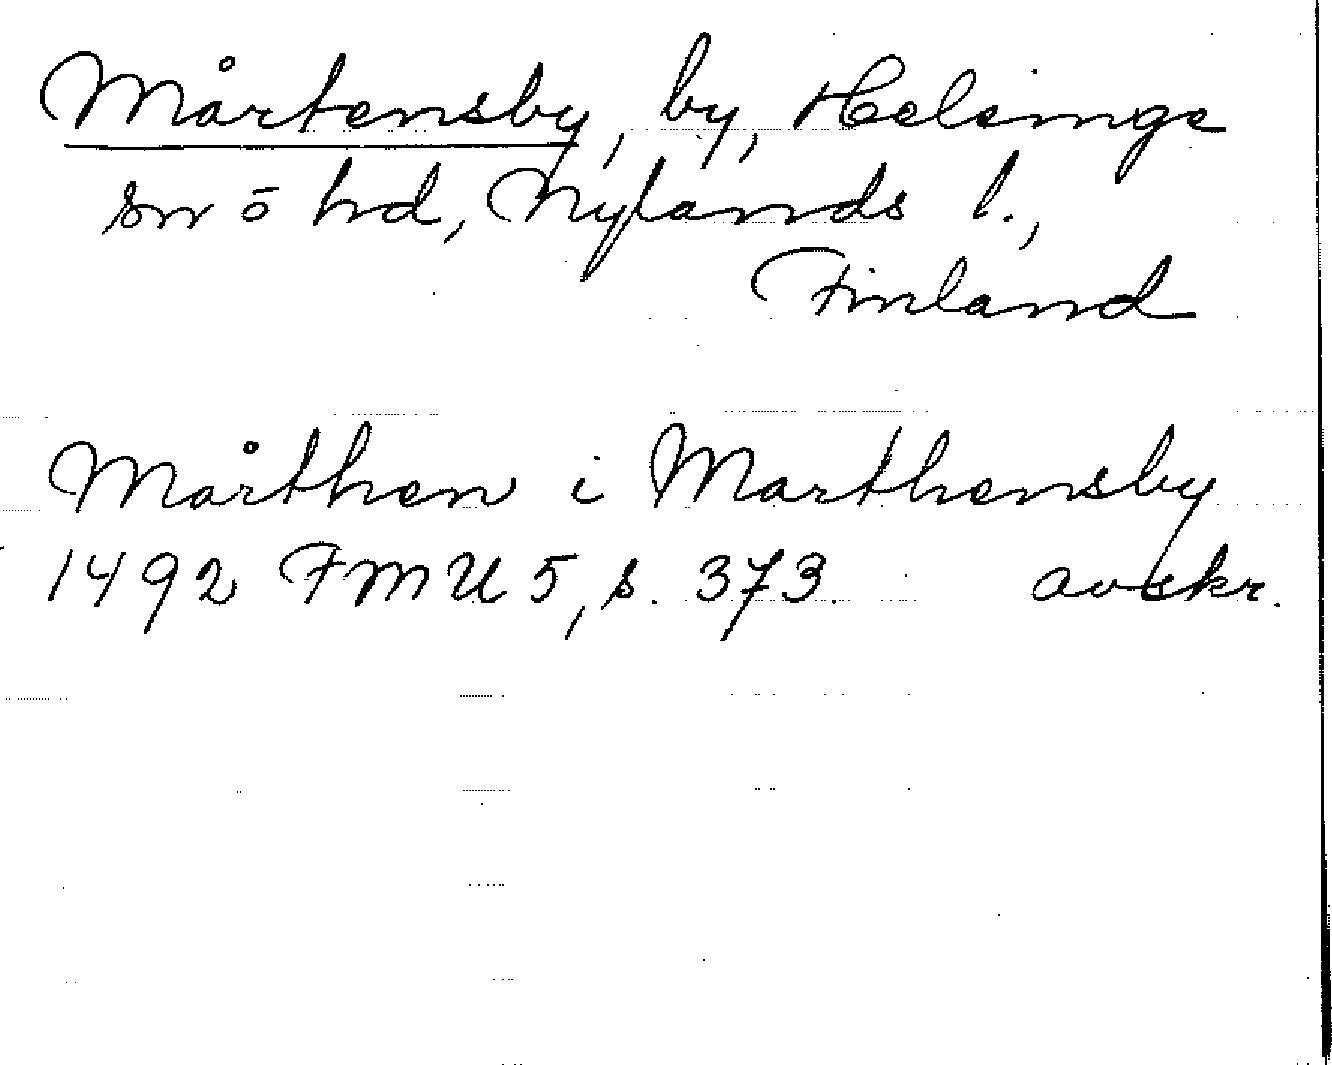 Mårtensby, by, Helsinge
sn ō hd, Nylands l.,
Finland
Mårthen i Marthensby
1492 FMU 5, s. 373. avskr.